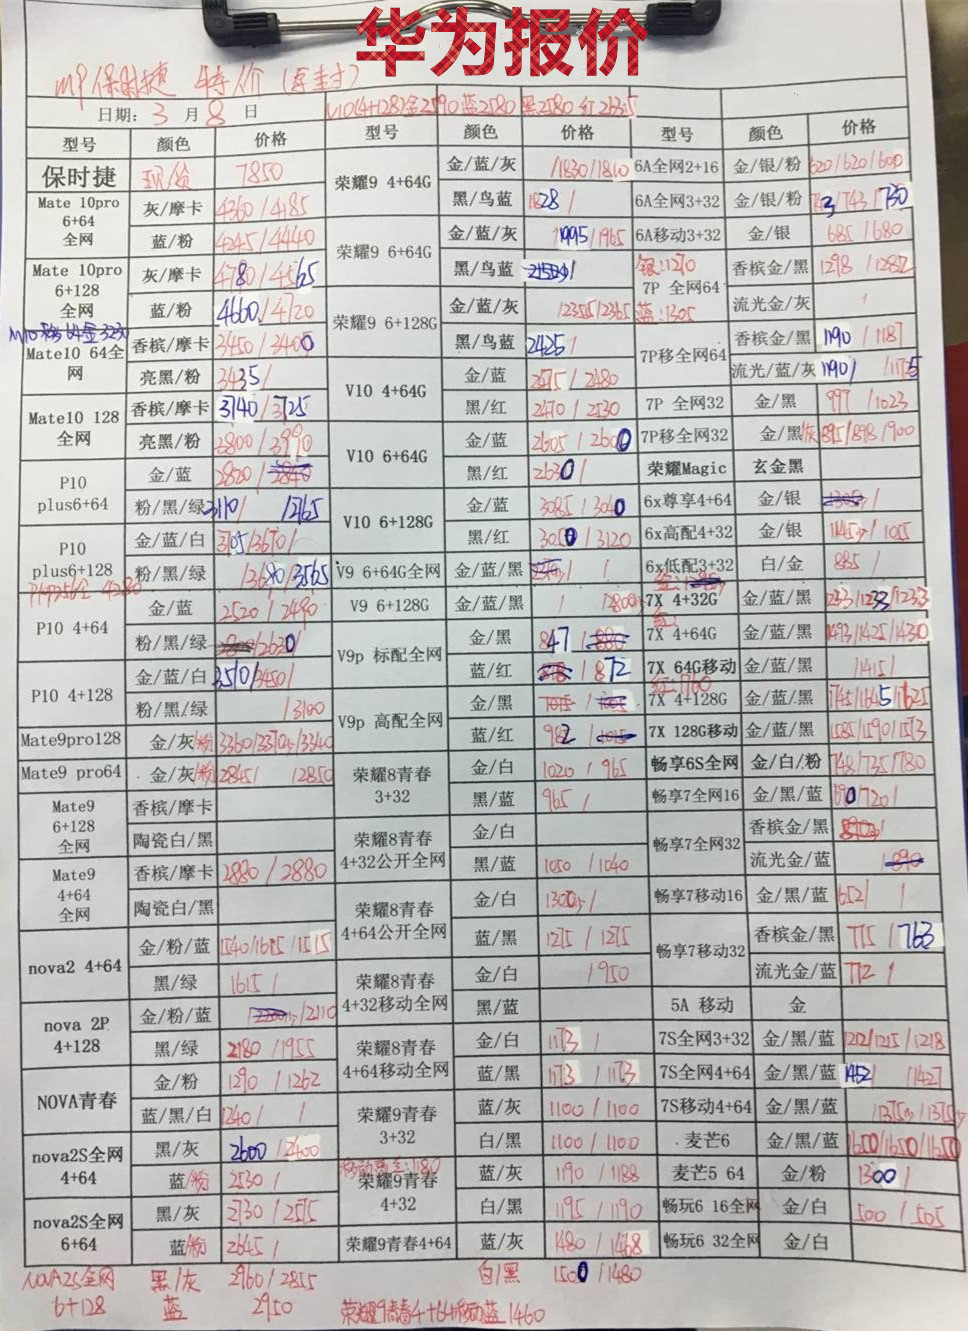 华为报价
M9保时捷 特价 (原封)
日期: 3 月 8 日 V10(4+128)金2590 蓝2580 黑2580
型号 颜色 价格 型号 颜色 价格 型号 颜色 价格
保时捷 现/货 7850
Mate 10pro 6+64 全网 灰/摩卡 4360/4185
蓝/粉 4245/4440
Mate 10pro 6+128 全网 灰/摩卡 4780/4565
蓝/粉 4660/4720
M10移64金
Mate10 64全网 香槟/摩卡 3450/3400
亮黑/粉 3435/
Mate10 128 全网 香槟/摩卡 3740/3725
亮黑/粉
P10 plus6+64 金/蓝 2820/
粉/黑/绿
P10 plus6+128 金/蓝/白 3705/3670/
粉/黑/绿 /3680/3565
P10 4+64 金/蓝 2520/2490
粉/黑/绿
P10 4+128 金/蓝/白 3510/3450/
粉/黑/绿 /3100
Mate9pro128 金/灰/粉
Mate9 pro64 金/灰/粉 2845/ /2850
Mate9 6+128 全网 香槟/摩卡
陶瓷白/黑
Mate9 4+64 全网 香槟/摩卡 2880/2880
陶瓷白/黑
nova2 4+64 金/粉/蓝
黑/绿 1615/
nova 2P 4+128 金/粉/蓝 /2110
黑/绿 2180/1955
NOVA青春 金/粉 1290/1262
蓝/黑/白 1240/ /
nova2S全网 4+64 黑/灰 2600/2400
蓝/粉 2530/
nova2S全网 6+64 黑/灰 2730/2575
蓝/粉 2645/
NOVA2S全网 6+128 黑/灰 2960/2855
蓝 2950
荣耀9 4+64G 金/蓝/灰 /1830/1810
黑/鸟蓝
荣耀9 6+64G 金/蓝/灰 /1995/1965
黑/鸟蓝
荣耀9 6+128G 金/蓝/灰 /2365
黑/鸟蓝 2425/
V10 4+64G 金/蓝 2475/2480
黑/红 2470/2530
V10 6+64G 金/蓝 2605/2600
黑/红 2630/
V10 6+128G 金/蓝 3085/3040
黑/红 3050/3120
V9 6+64G全网 金/蓝/黑
V9 6+128G 金/蓝/黑 / /2800
V9p 标配全网 金/黑 847/
蓝/红 /872
V9p 高配全网 金/黑
蓝/红 982/
荣耀8青春 3+32 金/白 1020/965
黑/蓝 965/
荣耀8青春 4+32公开全网 金/白
黑/蓝 1050/1040
荣耀8青春 4+64公开全网 金/白
蓝/黑 1275/1275
荣耀8青春 4+32移动全网 金/白
黑/蓝
荣耀8青春 4+64移动全网 金/白 1173/
蓝/黑 1173/1173
荣耀9青春 3+32 蓝/灰 1100/1100
白/黑 1100/1100
荣耀9青春 4+32 蓝/灰 1190/1188
白/黑 1195/1190
荣耀9青春4+64 蓝/灰 1480/1468
白/黑 1500/1480
荣耀9青春4+64移动蓝 1460
6A全网2+16 金/银/粉 620/620/600
6A全网3+32 金/银/粉 743/743/730
6A移动3+32 金/银 685/680
7P 全网64 香槟金/黑 1298/1282
流光金/灰 /
银:1270
蓝:1305
7P移全网64 香槟金/黑 1190/1187
流光/蓝/灰 1190/ /1175
7P 全网32 金/黑 997/1023
7P移全网32 金/黑/灰 895/898/900
荣耀Magic 玄金黑
6x尊享4+64 金/银
6x高配4+32 金/银
6x低配3+32 白/金 885/
7X 4+32G 金/蓝/黑 1233/1233/1233
7X 4+64G 金/蓝/黑 1493/1425/1430
7X 64G移动 金/蓝/黑 /1415/
红:1760
7X 4+128G 金/蓝/黑 1745/1645/1625
7X 128G移动 金/蓝/黑 1585/1590/1573
畅享6S全网 金/白/粉 748/735/780
畅享7全网16 金/黑/蓝
畅享7全网32 香槟金/黑
流光金/蓝
畅享7移动16 金/黑/蓝 652/ /
畅享7移动32 香槟金/黑 775/763
流光金/蓝 772/
5A 移动 金
7S全网3+32 金/黑/蓝 1212/1215/1218
7S全网4+64 金/黑/蓝 1452/ /1427
7S移动4+64 金/黑/蓝
麦芒6 金/黑/蓝 1650/1650/1650
麦芒5 64 金/粉 1300/
畅玩6 16全网 金/白 500/505
畅玩6 32全网 金/白